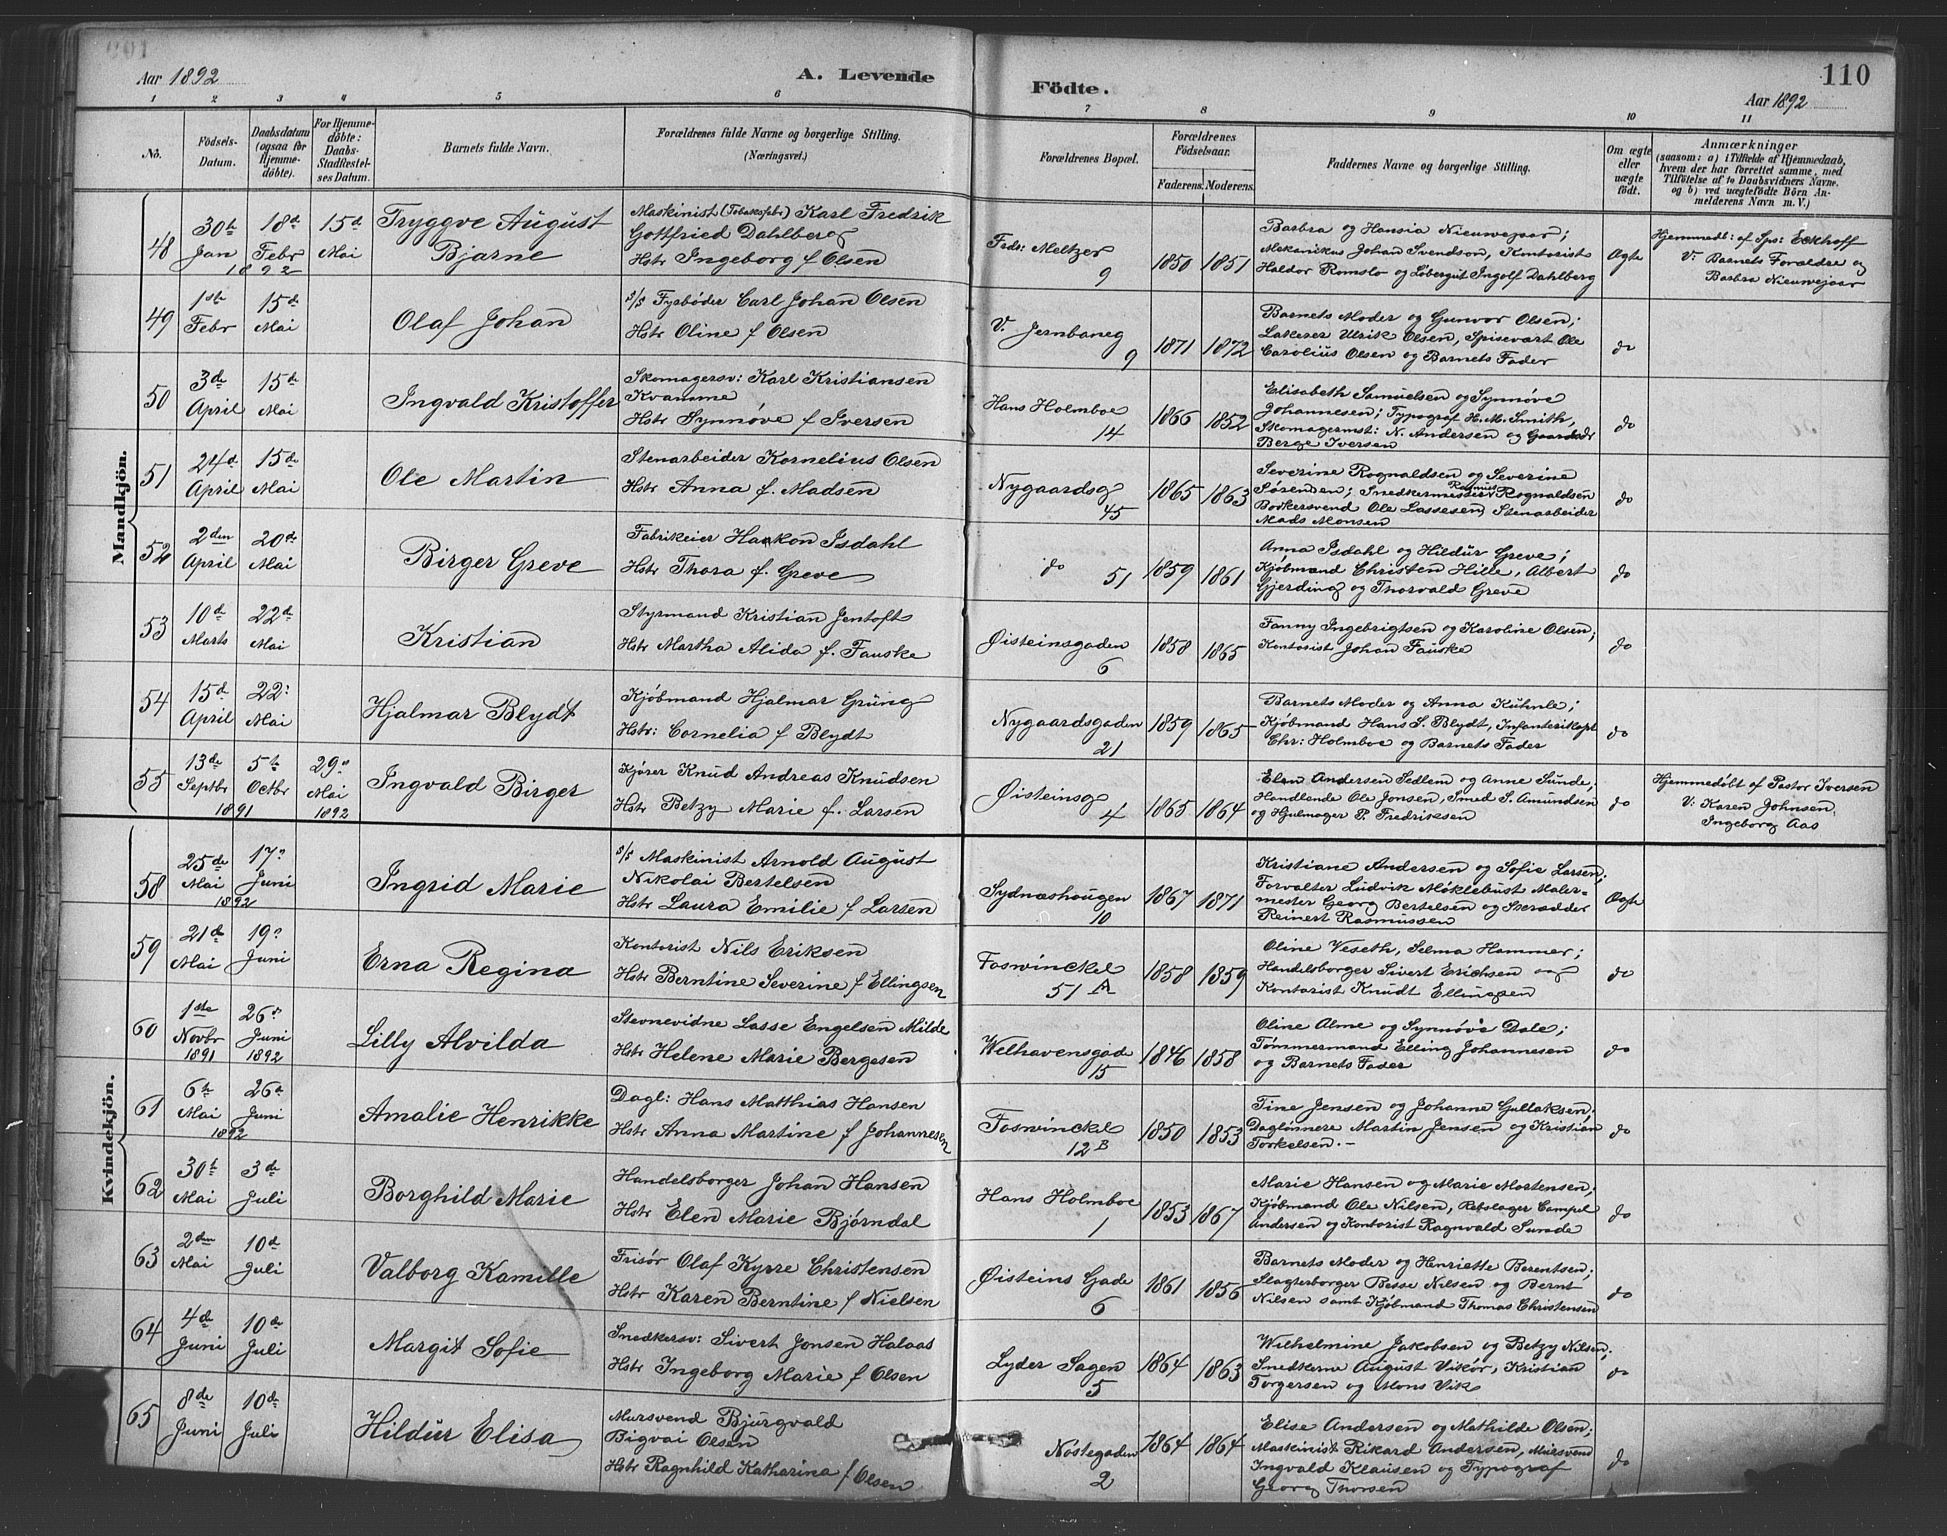 Aar 1892
A. Levende
Födte.
110
Aar 1892
1 2 3 4 5 6 7 8 9 10 11
No.
Födsels-
Datum.
Daabsdatum
(ogsaa for
Hjemme-
döbte).
For Hjemme-
döbte:
Daabs-
Stadfæstel-
ses Datum.
Barnets fulde Navn.
Forældrenes fulde Navne og borgerlige Stilling.
(Næringsvei.)
Forældrenes Bopæl.
Forældrenes
Födselsaar.
Faderens. Moderens.
Faddernes Navne og borgerlige Stilling.
Om ægte
eller
uægte
födt.
Anmærkninger
(saasom: a) i Tilfælde af Hjemmedaab,
hvem der har forrettet samme, med
Tilföielse af to Daabsvidners Navne,
og b) ved uægtefödte Börn An-
melderens Navn m. V.)
Mandkjön.
48
30te Jan
18de Febr
1892
15de Mai
Tryggve August
Bjarne
Maskinist (Tobaksfabr) Karl Fredrik
Gottfried Dahlberg
Hstr Ingeborg f Olsen
Fads: Meltzer
9
1850 1851
Barbra og Hansia Nieuwejaar;
Mekanikus Johan Svendson, Kontorist
Haldor Romslo og Løbergut Ingolf Dahlberg
Ægte
Hjemmedb: af Sps: Eckhoff
V: Barnets Forældre og
Barbra Nieuwejaar
49
1ste Febr
15de Mai
Olaf Johan
s/s Fyrbøder Carl Johan Olsen
Hstr Oline f Olsen
V. Jernbaneg
9
1871 1872
Barnets Moder og Gunvor Olsen;
Lakerer Ulrik Olsen, Spisevært Ole
Carolius Olsen og Barnets Fader
do
50
3de April
15de Mai
Ingvald Kristoffer
Skomagersv: Karl Kristiansen
Kvamme
Hstr Synnøve f Iversen
Hans Holmboe
14
1866 1852
Elisabeth Samuelsen og Synnøve
Johannesen; Typograf H. M. Smith,
Skomagermst: N. Andersen og Gaardsdr
Berge Iversen
do
51
24de April
15de Mai
Ole Martin
Stenarbeider Kornelius Olsen
Hstr Anna f. Madsen
Nygaardsg
45
1865 1863
Severine Rognaldsen og Severine
Sørensen; Snedkermester Rasmus Rognaldsen
Bødkersvend Ole Lassesen, Stenarbeider
Mads Monsen
do
52
2den April
20de Mai
Birger Greve
Fabrikeier Haakon Isdahl
Hstr Thora f. Greve
do 51
1859 1861
Anna Isdahl og Hildur Greve;
Kjøbmand Christen Hille, Albert
Gjerding og Thorvald Greve
do
53
10de Marts
22de Mai
Kristian
Styrmand Kristian Jentoft
Hstr Martha Alida f. Fauske
Øisteinsgaden
6
1858 1865
Fanny Ingebrigtsen og Karoline Olsen;
Kontorist Johan Fauske
do
54
15de April
22: Mai
Hjalmar Blydt
Kjøbmand Hjalmar Grung
Hstr: Cornelia f Blydt
Nygaardsgaden
21
1859 1865
Barnets Moder og Anna Kuhnle;
Kjøbmand Hans S. Blydt, Infanterikapt
Chr: Holmboe og Barnets Fader
do
55
13de Septbr
5te Octbr
1891
29de Mai
1892
Ingvald Birger
Kjører Knud Andreas Knudsen
Hstr Betzy Marie f. Larsen
Øisteinsg
4
1865 1864
Elen Andersen Sedlem og Anne Sunde;
Handlende Ole Jonsen, Smed S. Amundsen
og Hjulmager P. Fredriksen
do
Hjemmedøbt af Pastor Iversen
V: Karen Johnsen,
Ingeborg Aas
Kvindekjön.
58
25de Mai
17de Juni
1892
Ingrid Marie
s/s Maskinist Arnold August
Nikolai Bertelsen
Hstr Laura Emilie f Larsen
Sydnæshougen
10
1867 1871
Kristiane Andersen og Sofie Larsen;
Forvalter Ludvik Møklebust Maler-
mester Georg Bertelsen og Skrædder
Reinert Rasmussen
Ægte
59
21de Mai
19de Juni
Erna Regina
Kontorist Nils Eriksen
Hstr Berntine Severine f Ellingsen
Foswinckel
51 A
1858 1859
Oline Veseth, Selma Hammer;
Handelsborger Sivert Erichsen og
Kontorist Knudt Ellingsen
do
60
1ste Novbr
1891
26de Juni
1892
Lilly Alvilda
Stevnevidne Lasse Engelsen Milde
Hstr Helene Marie Bergesen
Welhavensgade
15
1846 1858
Oline Alme og Synnøve Dale;
Tømmermand Elling Johannesen
og Barnets Fader
do
61
6te Mai
26de Juni
1892
Amalie Henrikke
Dagl: Hans Matthias Hansen
Hstr Anna Martine f Johannesen
Foswinckel
12 B
1850 1853
Tine Jensen og Johanne Gullaksen.
Daglønnere Martin Jensen og Kristian
Torkelsen. -
do
62
30te Mai
3de Juli
Borghild Marie
Handelsborger Johan Hansen
Hstr Elen Marie Bjørndal
Hans Holmboe
1
1853 1867
Marie Hansen og Marie Mortensen;
Kjøbmand Ole Nilsen, Rebslager Campel
Andersen og Kontorist Ragnvald Sunde
do
63
2den Mai
10de Juli
Valborg Kamille
Frisør Olaf Kyrre Christensen
Hstr Karen Berntine f Nielsen
Øisteins Gade
6
1861 1856
Barnets Moder og Henriette Berentsen;
Slagterborger Besse Nilsen og Bernt
Nilsen samt Kjøbmand Thomas Christensen
do
64
4de Juni
10de Juli
Margit Sofie
Snedkersv: Sivert Jonsen Halaas
Hstr Ingeborg Marie f Olsen
Lyder Sagen
5
1864 1863
Wilhelmine Jakobsen og Betzy Nilsen;
Snedkerne August Vikør, Kristian
Torgersen og Mons Vik
do
65
8de Juni
10de Juli
Hildur Elisa
Mursvend Bjurgvald
Bigvai Olsen
Hstr Ragnhild Katharina f Olsen
Nøstegaden
2
1864 1864
Elise Andersen og Mathilde Olsen;
Maskinist Rikard Andersen, Mursvend
Ingvald Klausen og Typograf
Georg Thorsen
do